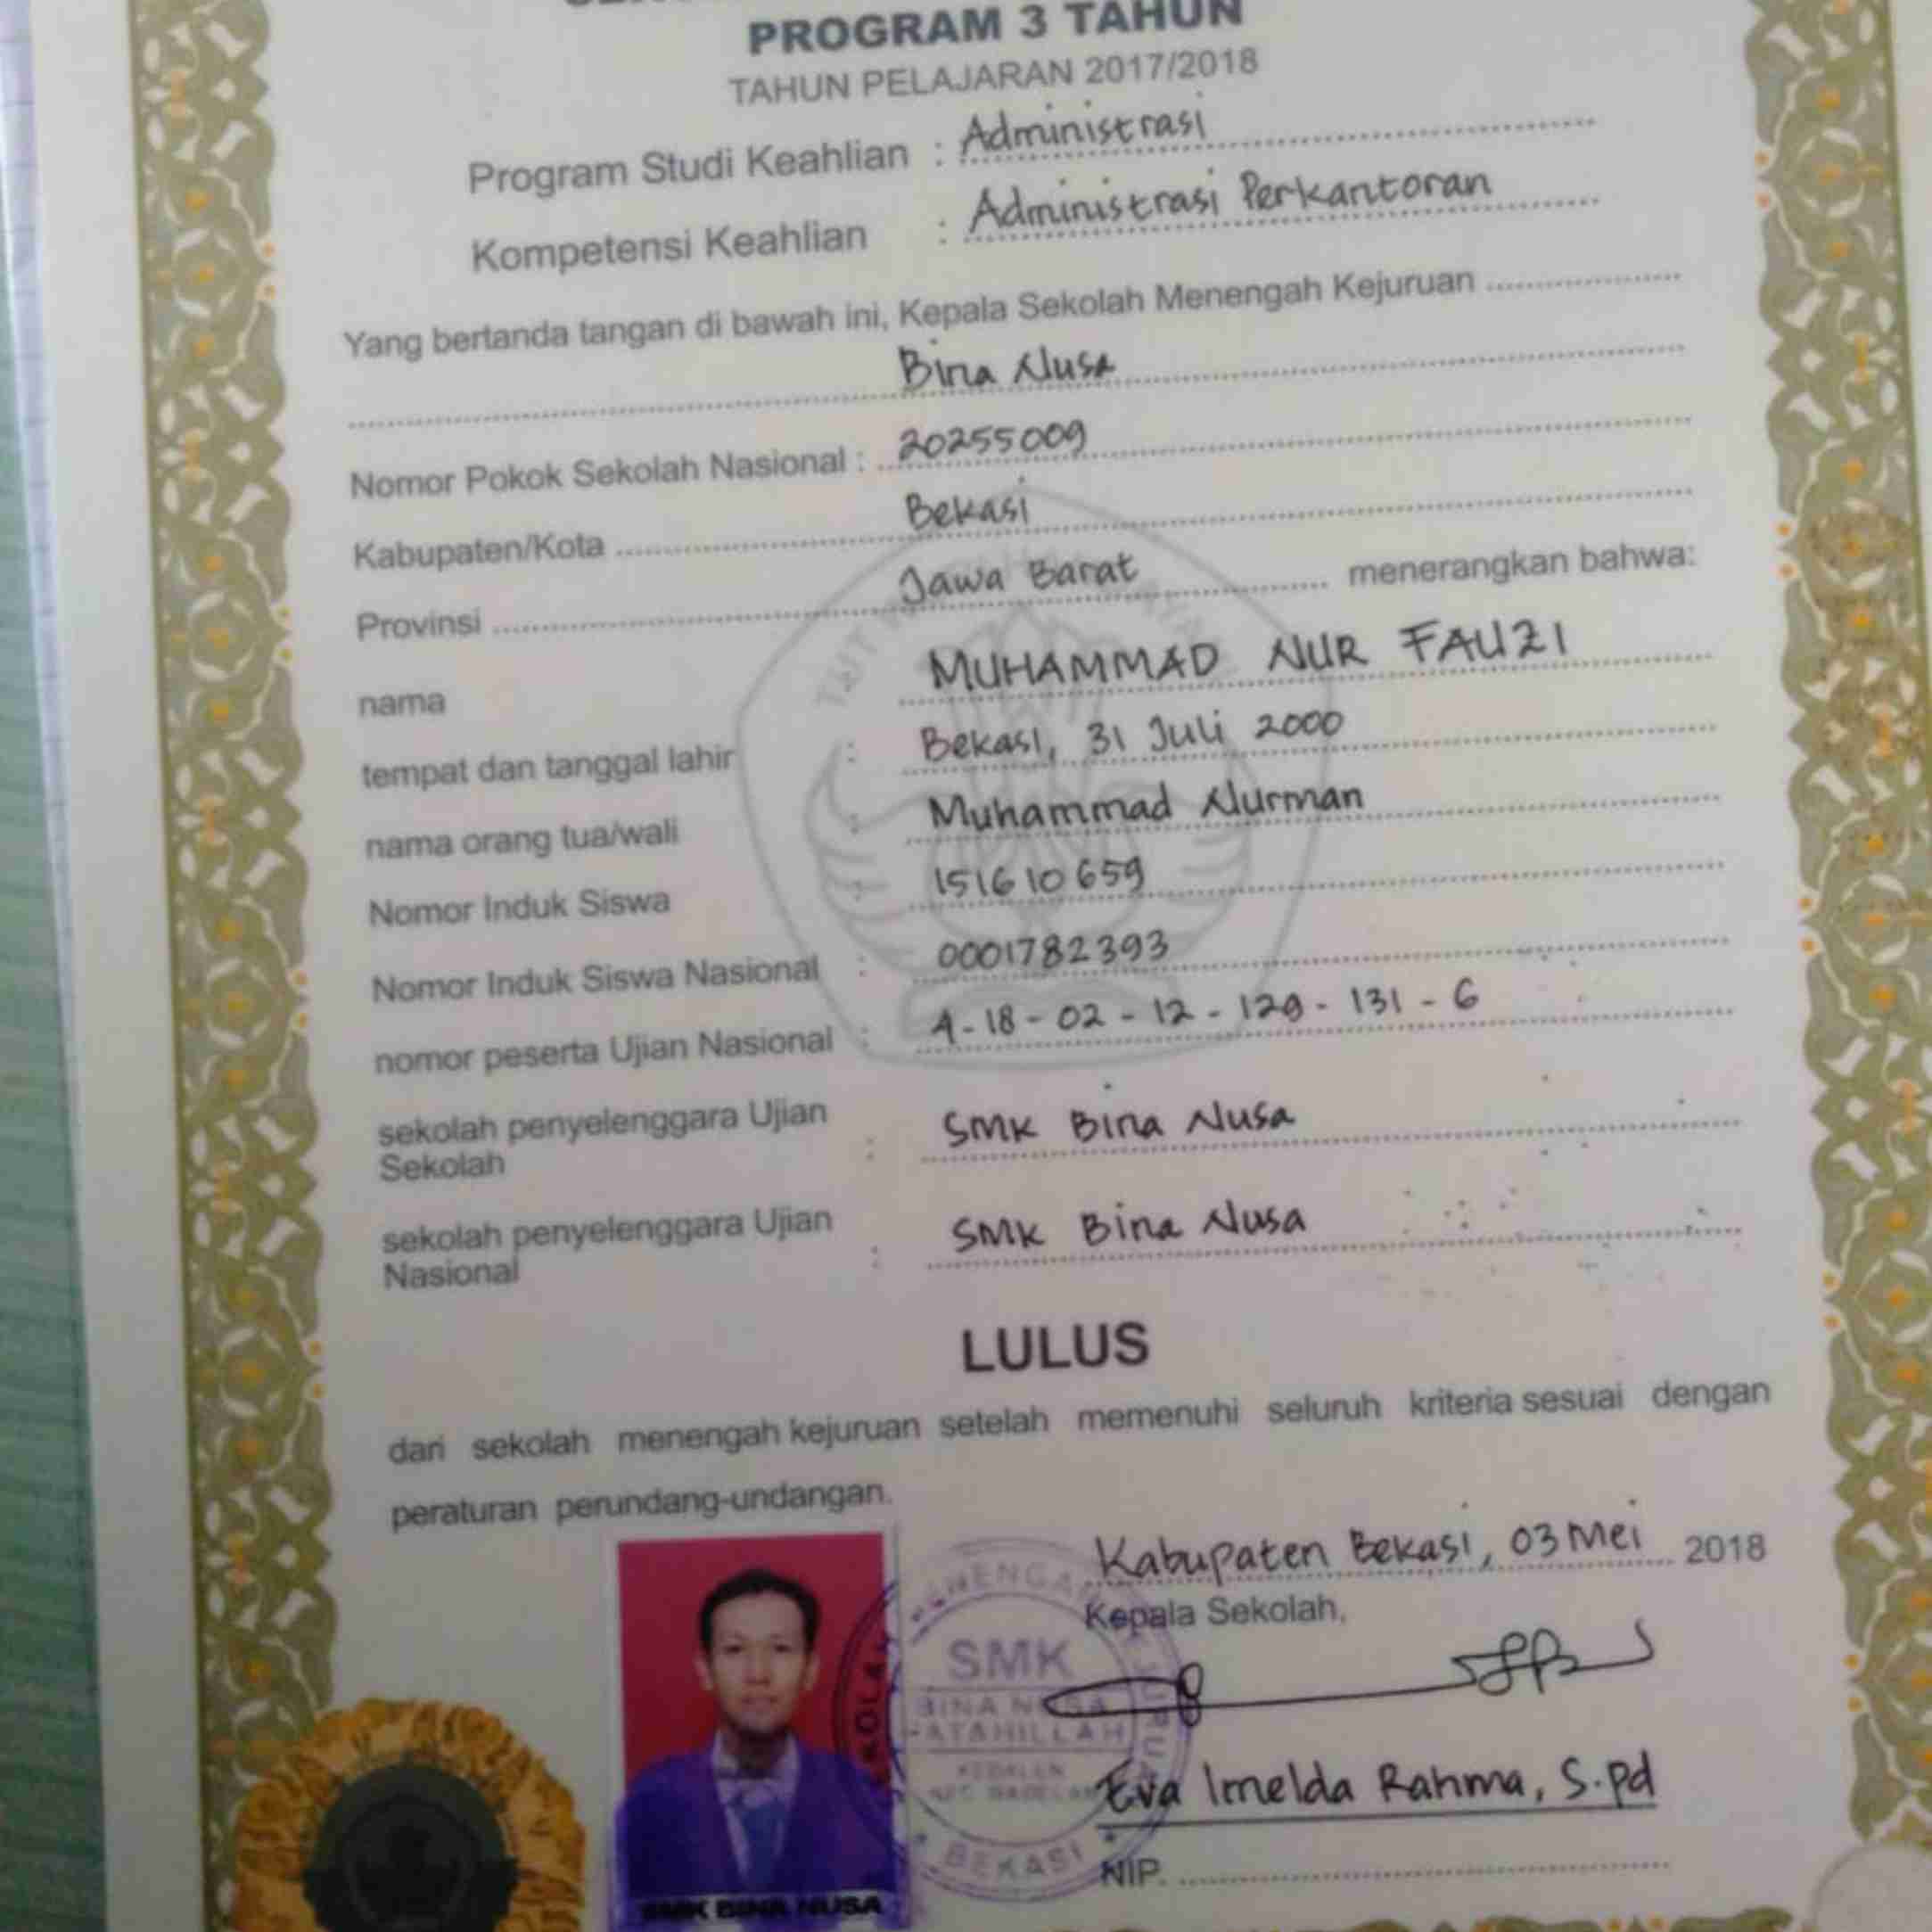 PROGRAM 3 TAHUN
TAHUN PELAJARAN 2017/2018
Program Studi Keahlian : Administrasi
Kompetensi Keahlian : Administrasi Perkantoran
Yang bertanda tangan di bawah ini, Kepala Sekolah Menengah Kejuruan
Bina Nusa
Nomor Pokok Sekolah Nasional : 20255009
Kabupaten/Kota Bekasi
Provinsi Jawa Barat menerangkan bahwa:
nama MUHAMMAD NUR FAUZI
tempat dan tanggal lahir : Bekasi, 31 Juli 2000
nama orang tua/wali : Muhammad Nurman
Nomor Induk Siswa : 151610659
Nomor Induk Siswa Nasional : 0001782393
nomor peserta Ujian Nasional : 4-18-02-12-129-131-6
sekolah penyelenggara Ujian
Sekolah : SMK Bina Nusa
sekolah penyelenggara Ujian
Nasional : SMK Bina Nusa
LULUS
dari sekolah menengah kejuruan setelah memenuhi seluruh kriteria sesuai dengan
peraturan perundang-undangan.
Kabupaten Bekasi, 03 Mei 2018
Kepala Sekolah,
SMK
BINA NUSA
BEKASI
Eva Imelda Rahma, S.Pd
NIP.
SMK BINA NUSA